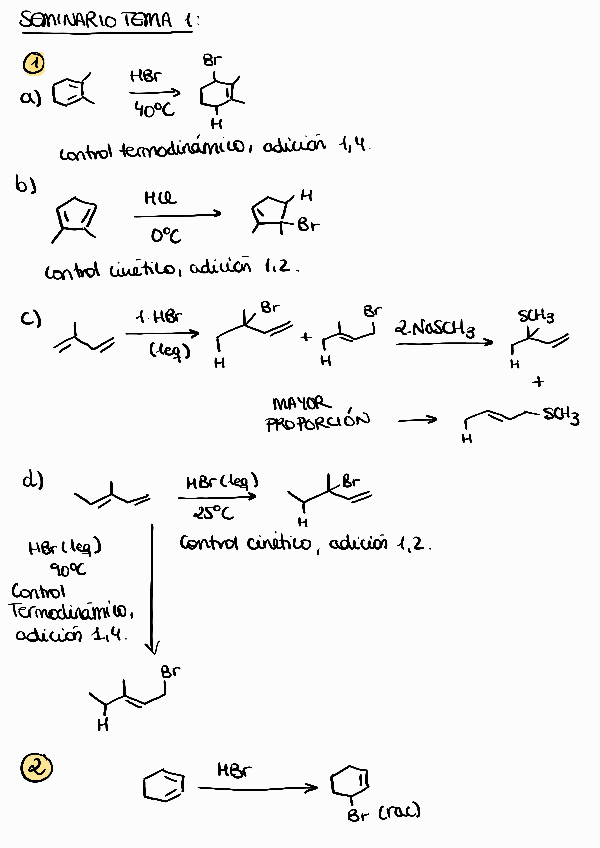 SEMINARIO TEMA 1:
1
a) HBr
40ºC
Br
H
control termodinámico, adición 1,4.
b) HCl
0ºC
H
Br
control cinético, adición 1,2.
c) 1. HBr
(1eq)
Br
H
+
Br
H
2. NaSCH3
SCH3
H
+
MAYOR
PROPORCIÓN
SCH3
H
d) HBr (1eq)
25ºC
Br
H
Control cinético, adición 1,2.
HBr (1eq)
90ºC
Control
Termodinámico,
adición 1,4.
Br
H
2
HBr
Br (rac)